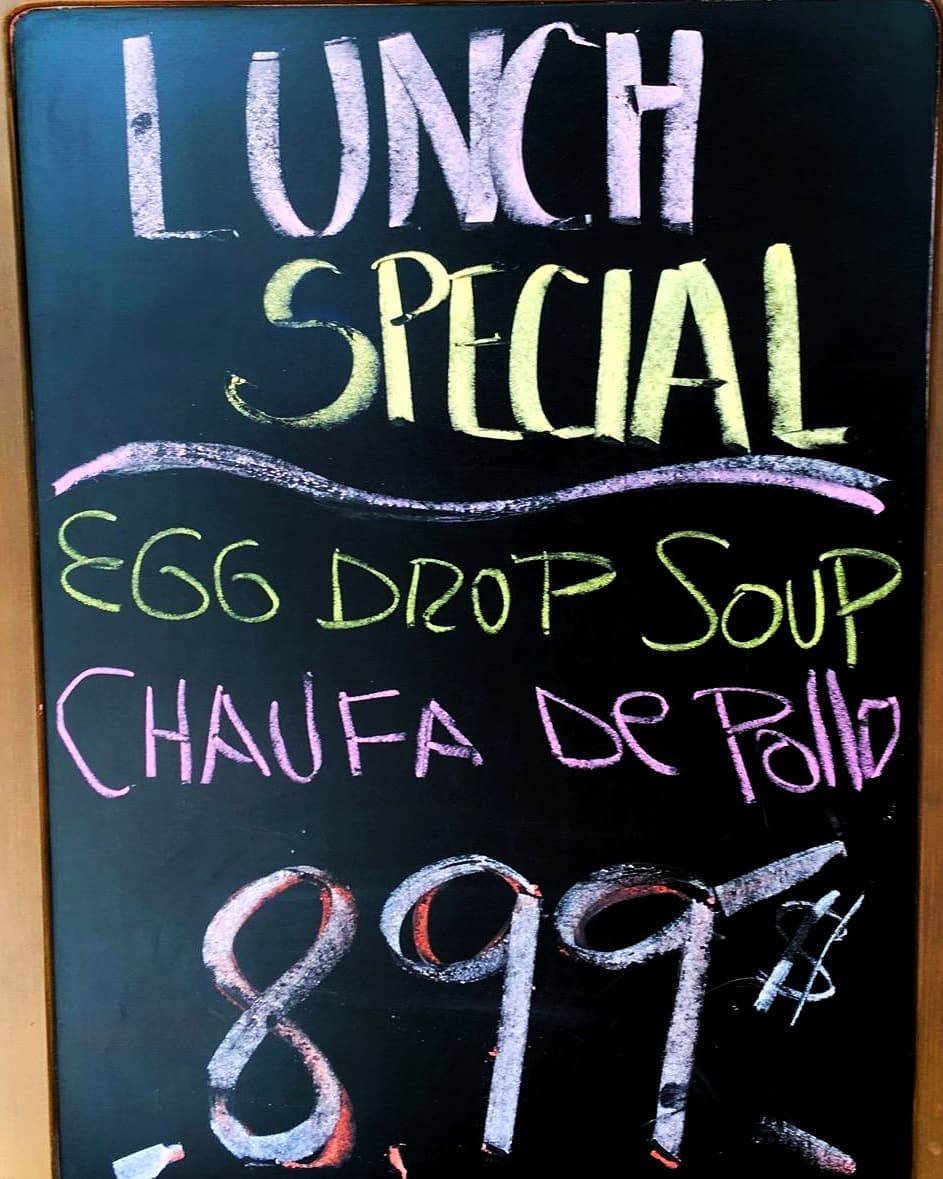 LUNCH
SPECIAL
EGG DROP SOUP
CHAUFA De Pollo
899 $